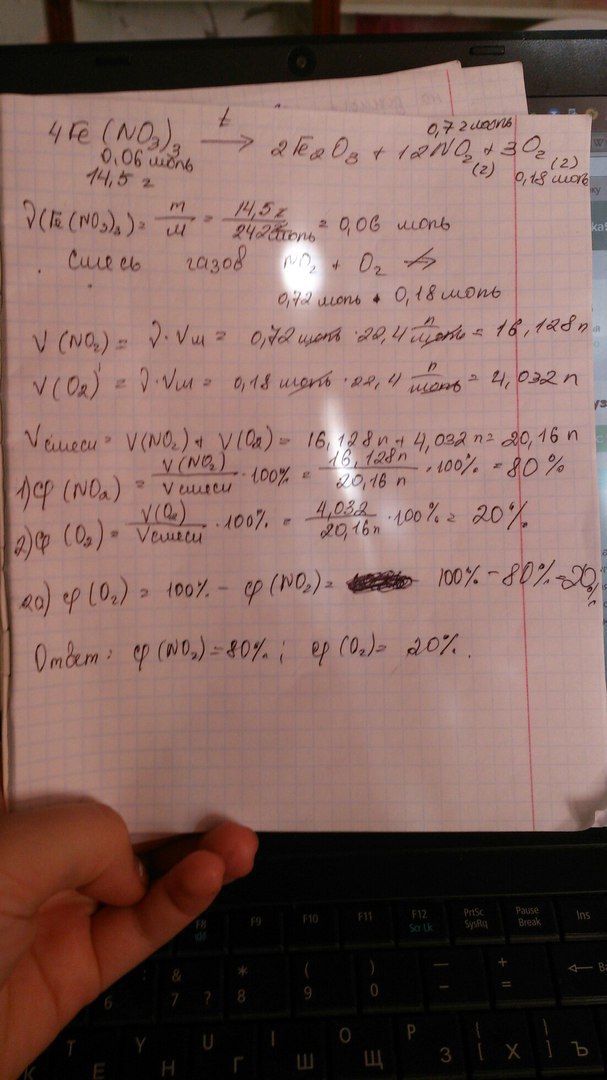 0,72 моль
4Fe(NO3)3 t → 2Fe2O3 + 12NO2 + 3O2
0,06 моль (г) (г)
14,5 г 0,18 моль
ν(Fe(NO3)3) = m/M = 14,5 г/242 г/моль = 0,06 моль
Смесь газов NO2 + O2
0,72 моль + 0,18 моль
V(NO2) = ν·Vм = 0,72 моль · 22,4 л/моль = 16,128 л
V(O2) = ν·Vм = 0,18 моль · 22,4 л/моль = 4,032 л
Vсмеси = V(NO2) + V(O2) = 16,128 л + 4,032 л = 20,16 л
1) φ(NO2) = V(NO2)/Vсмеси · 100% = 16,128 л/20,16 л · 100% = 80%
2) φ(O2) = V(O2)/Vсмеси · 100% = 4,032/20,16 л · 100% = 20%
2а) φ(O2) = 100% - φ(NO2) = 100% - 80% = 20%
Ответ: φ(NO2) = 80%; φ(O2) = 20%.
F8 F9 F10 F11 F12 PrtSc Pause Ins
Scr Lk SysRq Break
6 & 7 ? * 8 ( 9 ) 0 — - + = ← Ba
T Y U I O P { [ } ]
Е Н Г Ш Щ З Х Ъ